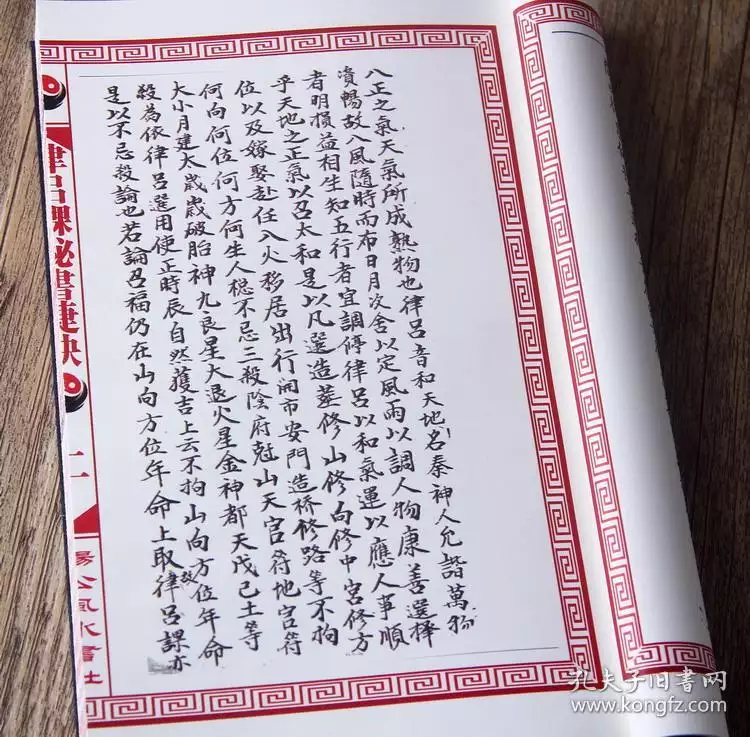 八正之氣天氣所成熟物也律呂音和天地名泰神人允諧萬物
資暢故八風隨時而布日月次舍以定風雨以調人物康善選擇
者明損益相生知五行者宜調停律呂以和氣運以應人事順
乎天地之正氣以召太和是以凡選造葬修山修向修中宮修方
位以及嫁娶赴任入火移居出行開市安門造桥修路等不拘
何向何位何方何生人楤不忌三殺陰府尅山天官符地官符
大小月建大歲歲破胎神九良星大退火星金神都天戊己土等
殺為依律呂選用使正時辰自然獲吉上云不拘山向方位年命
是以不忌殺論也若論召福仍在山向方位年命上取律呂課亦
律呂課秘書捷訣
二
楊公風水書社
孔夫子旧書网
www.kongfz.com